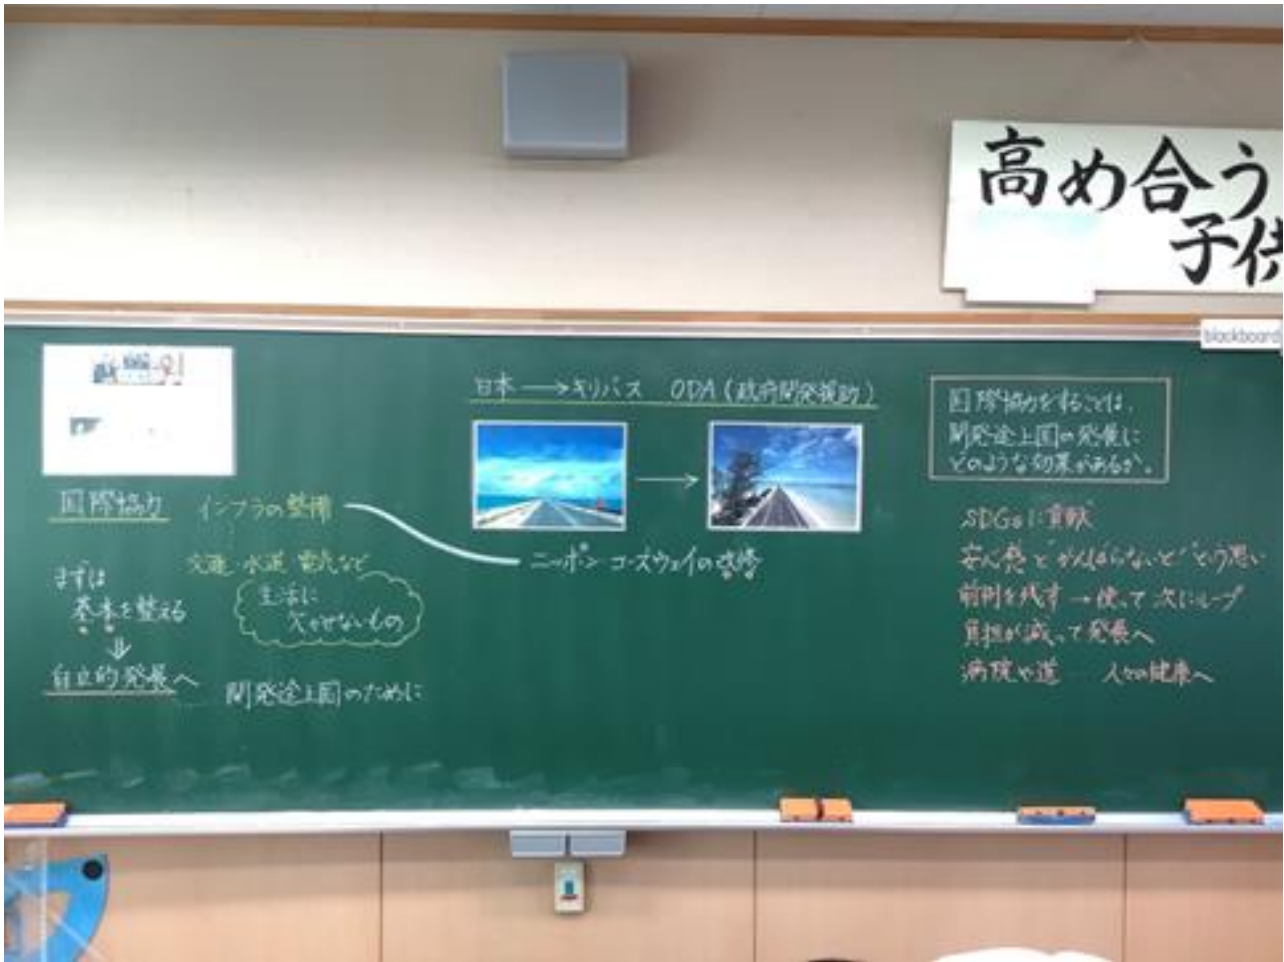 高め合う
子供
blackboard
国際協力
インフラの整備
交通 水道 電気など
生活に
欠かせないもの
まずは
基本を整える
⇓
自立的発展へ
開発途上国のために
日本 → キリバス ODA (政府開発援助)
→
ニッポンコーズウェイの改修
国際協力をすることは、
開発途上国の発展に
どのような効果があるか。
SDGsに貢献
安心感と"がんばらないと"という思い
前例を残す → 使って次にループ
負担が減って発展へ
病院や道 人々の健康へ